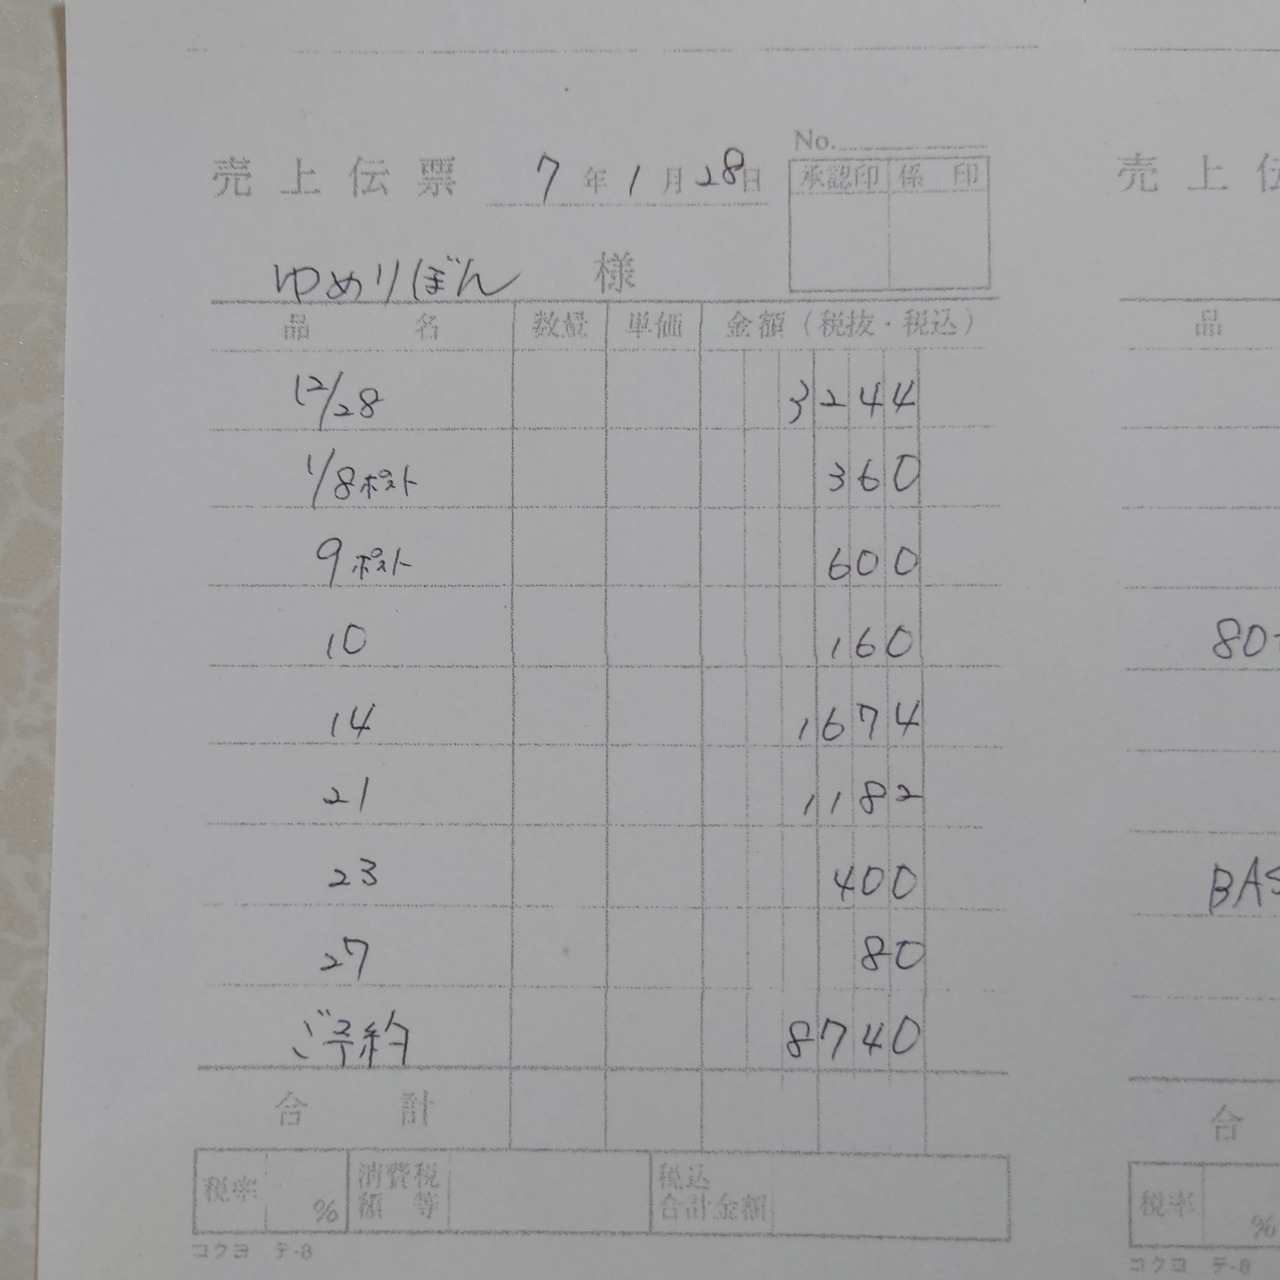 売上伝票 7年1月28日 No.
承認印 係印
ゆめりぼん 様
品名 数量 単価 金額(税抜・税込)
12/28 3244
1/8ポスト 360
9ポスト 600
10 160
14 1674
21 1182
23 400
27 80
ご予約 8740
合計
税率 % 消費税額等 税込合計金額
コクヨ テ-8
売上伝
品
80
BAS
合
税率 %
コクヨ テ-8